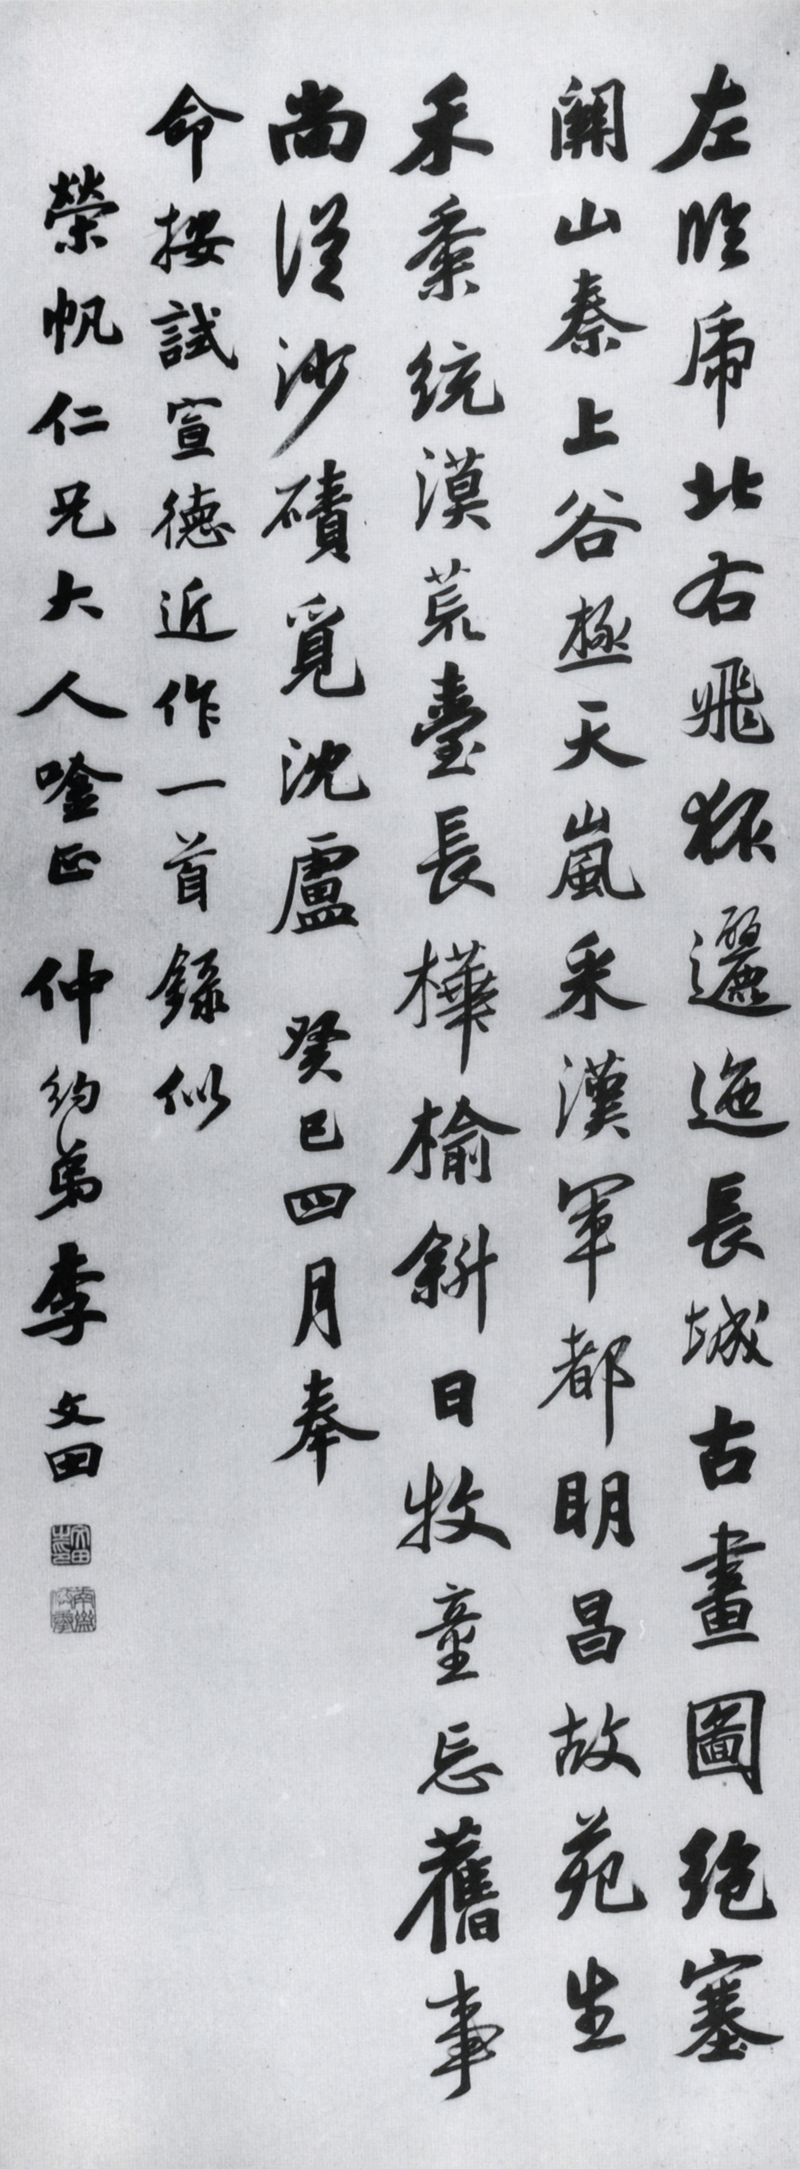 左眎虒北右飛狐邐迤長城古畫圖絶塞
關山秦上谷極天嵐采漢軍都明昌故苑生
禾黍統漠荒臺長樺榆斜日牧童忘舊事
尚從沙磧覓沈盧 癸巳四月奉
命按試宣德近作一首錄似
榮帆仁兄大人唫正 仲約弟李文田